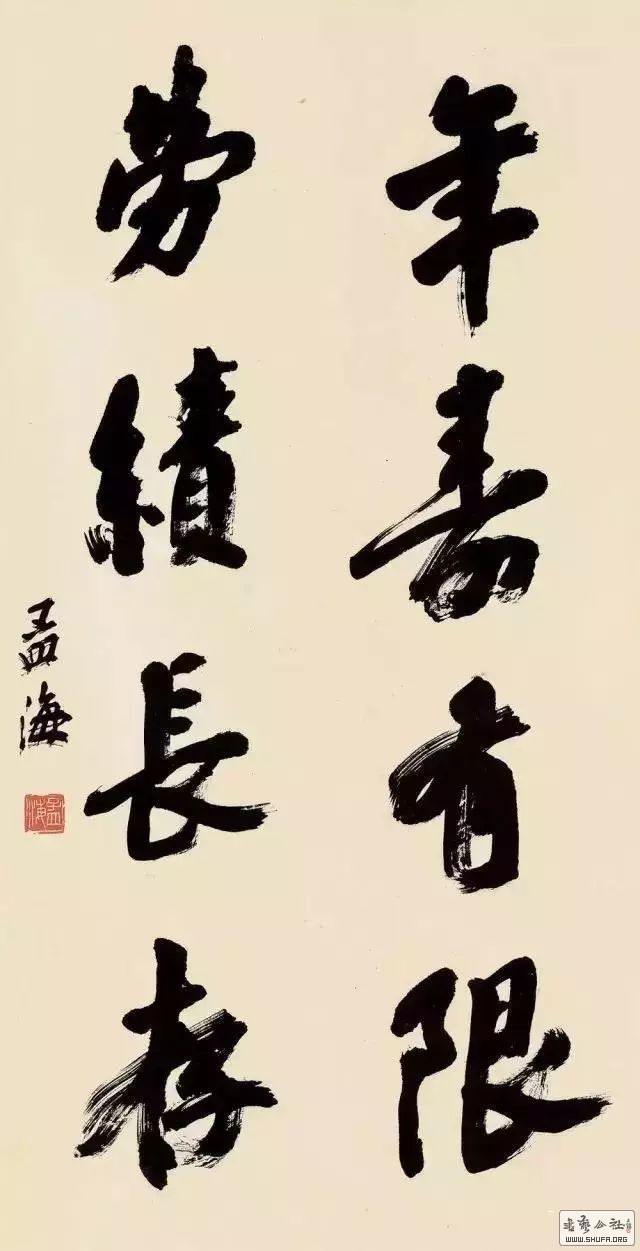 年壽有限
勞績長存
孟海
孟海
書藝公社
WWW.SHUFA.ORG